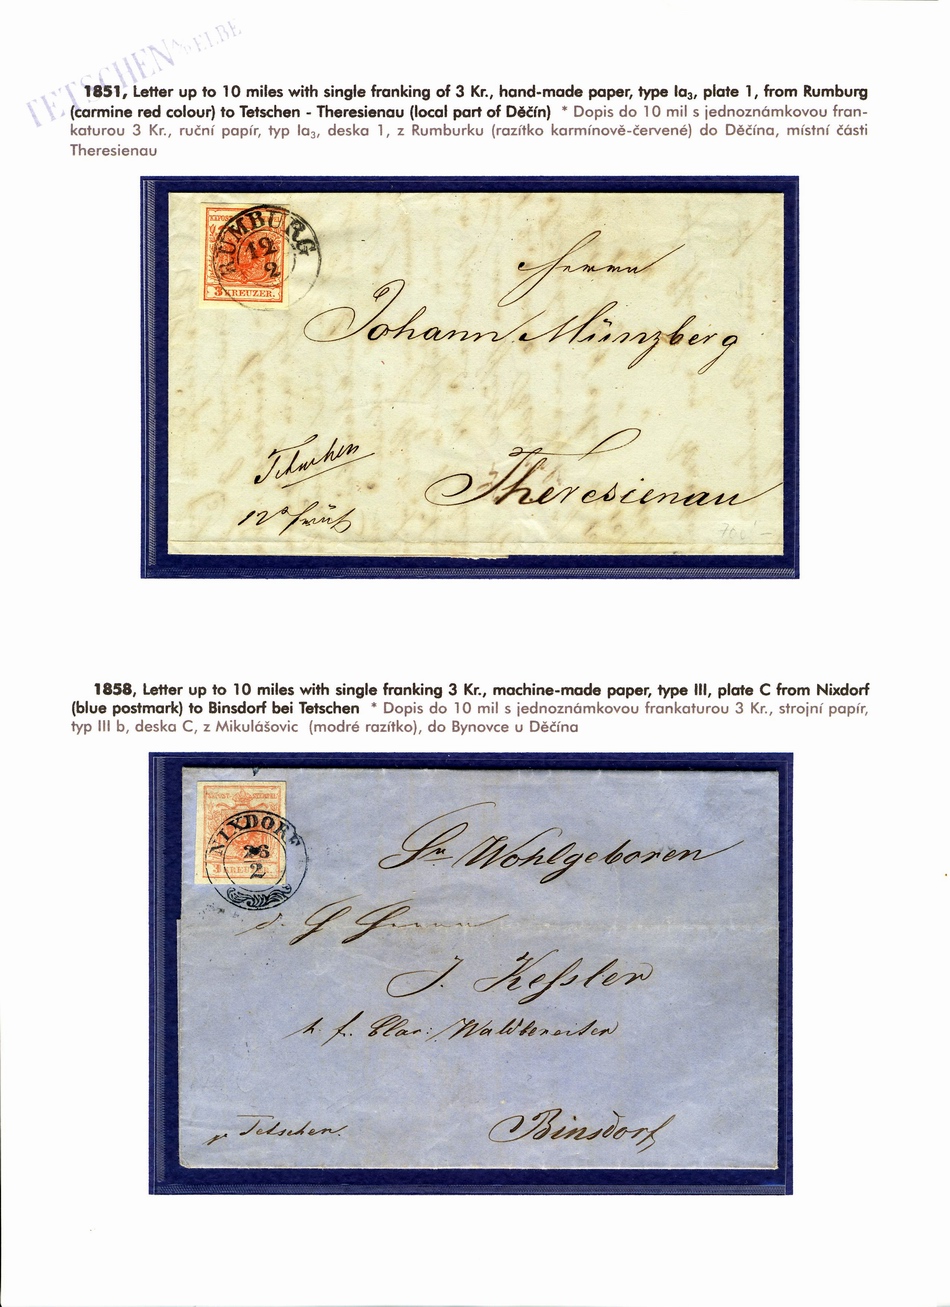 TETSCHEN A/D ELBE
1851, Letter up to 10 miles with single franking of 3 Kr., hand-made paper, type Ia3, plate 1, from Rumburg
(carmine red colour) to Tetschen - Theresienau (local part of Děčín) * Dopis do 10 mil s jednoznámkovou fran-
katurou 3 Kr., ruční papír, typ Ia3, deska 1, z Rumburku (razítko karmínově-červené) do Děčína, místní části
Theresienau
RUMBURG
12
2
3 KREUZER.
Herrn
Johann Münzberg
Tetschen
Theresienau
12° früh
1858, Letter up to 10 miles with single franking 3 Kr., machine-made paper, type III, plate C from Nixdorf
(blue postmark) to Binsdorf bei Tetschen * Dopis do 10 mil s jednoznámkovou frankaturou 3 Kr., strojní papír,
typ III b, deska C, z Mikulášovic (modré razítko), do Bynovce u Děčína
NIXDORF
26
2
3 KREUZER.
Sr Wohlgeboren
Herrn
J. Keſsler
h. f. Clar: Waldbereiter
pr Tetschen.
Binsdorf